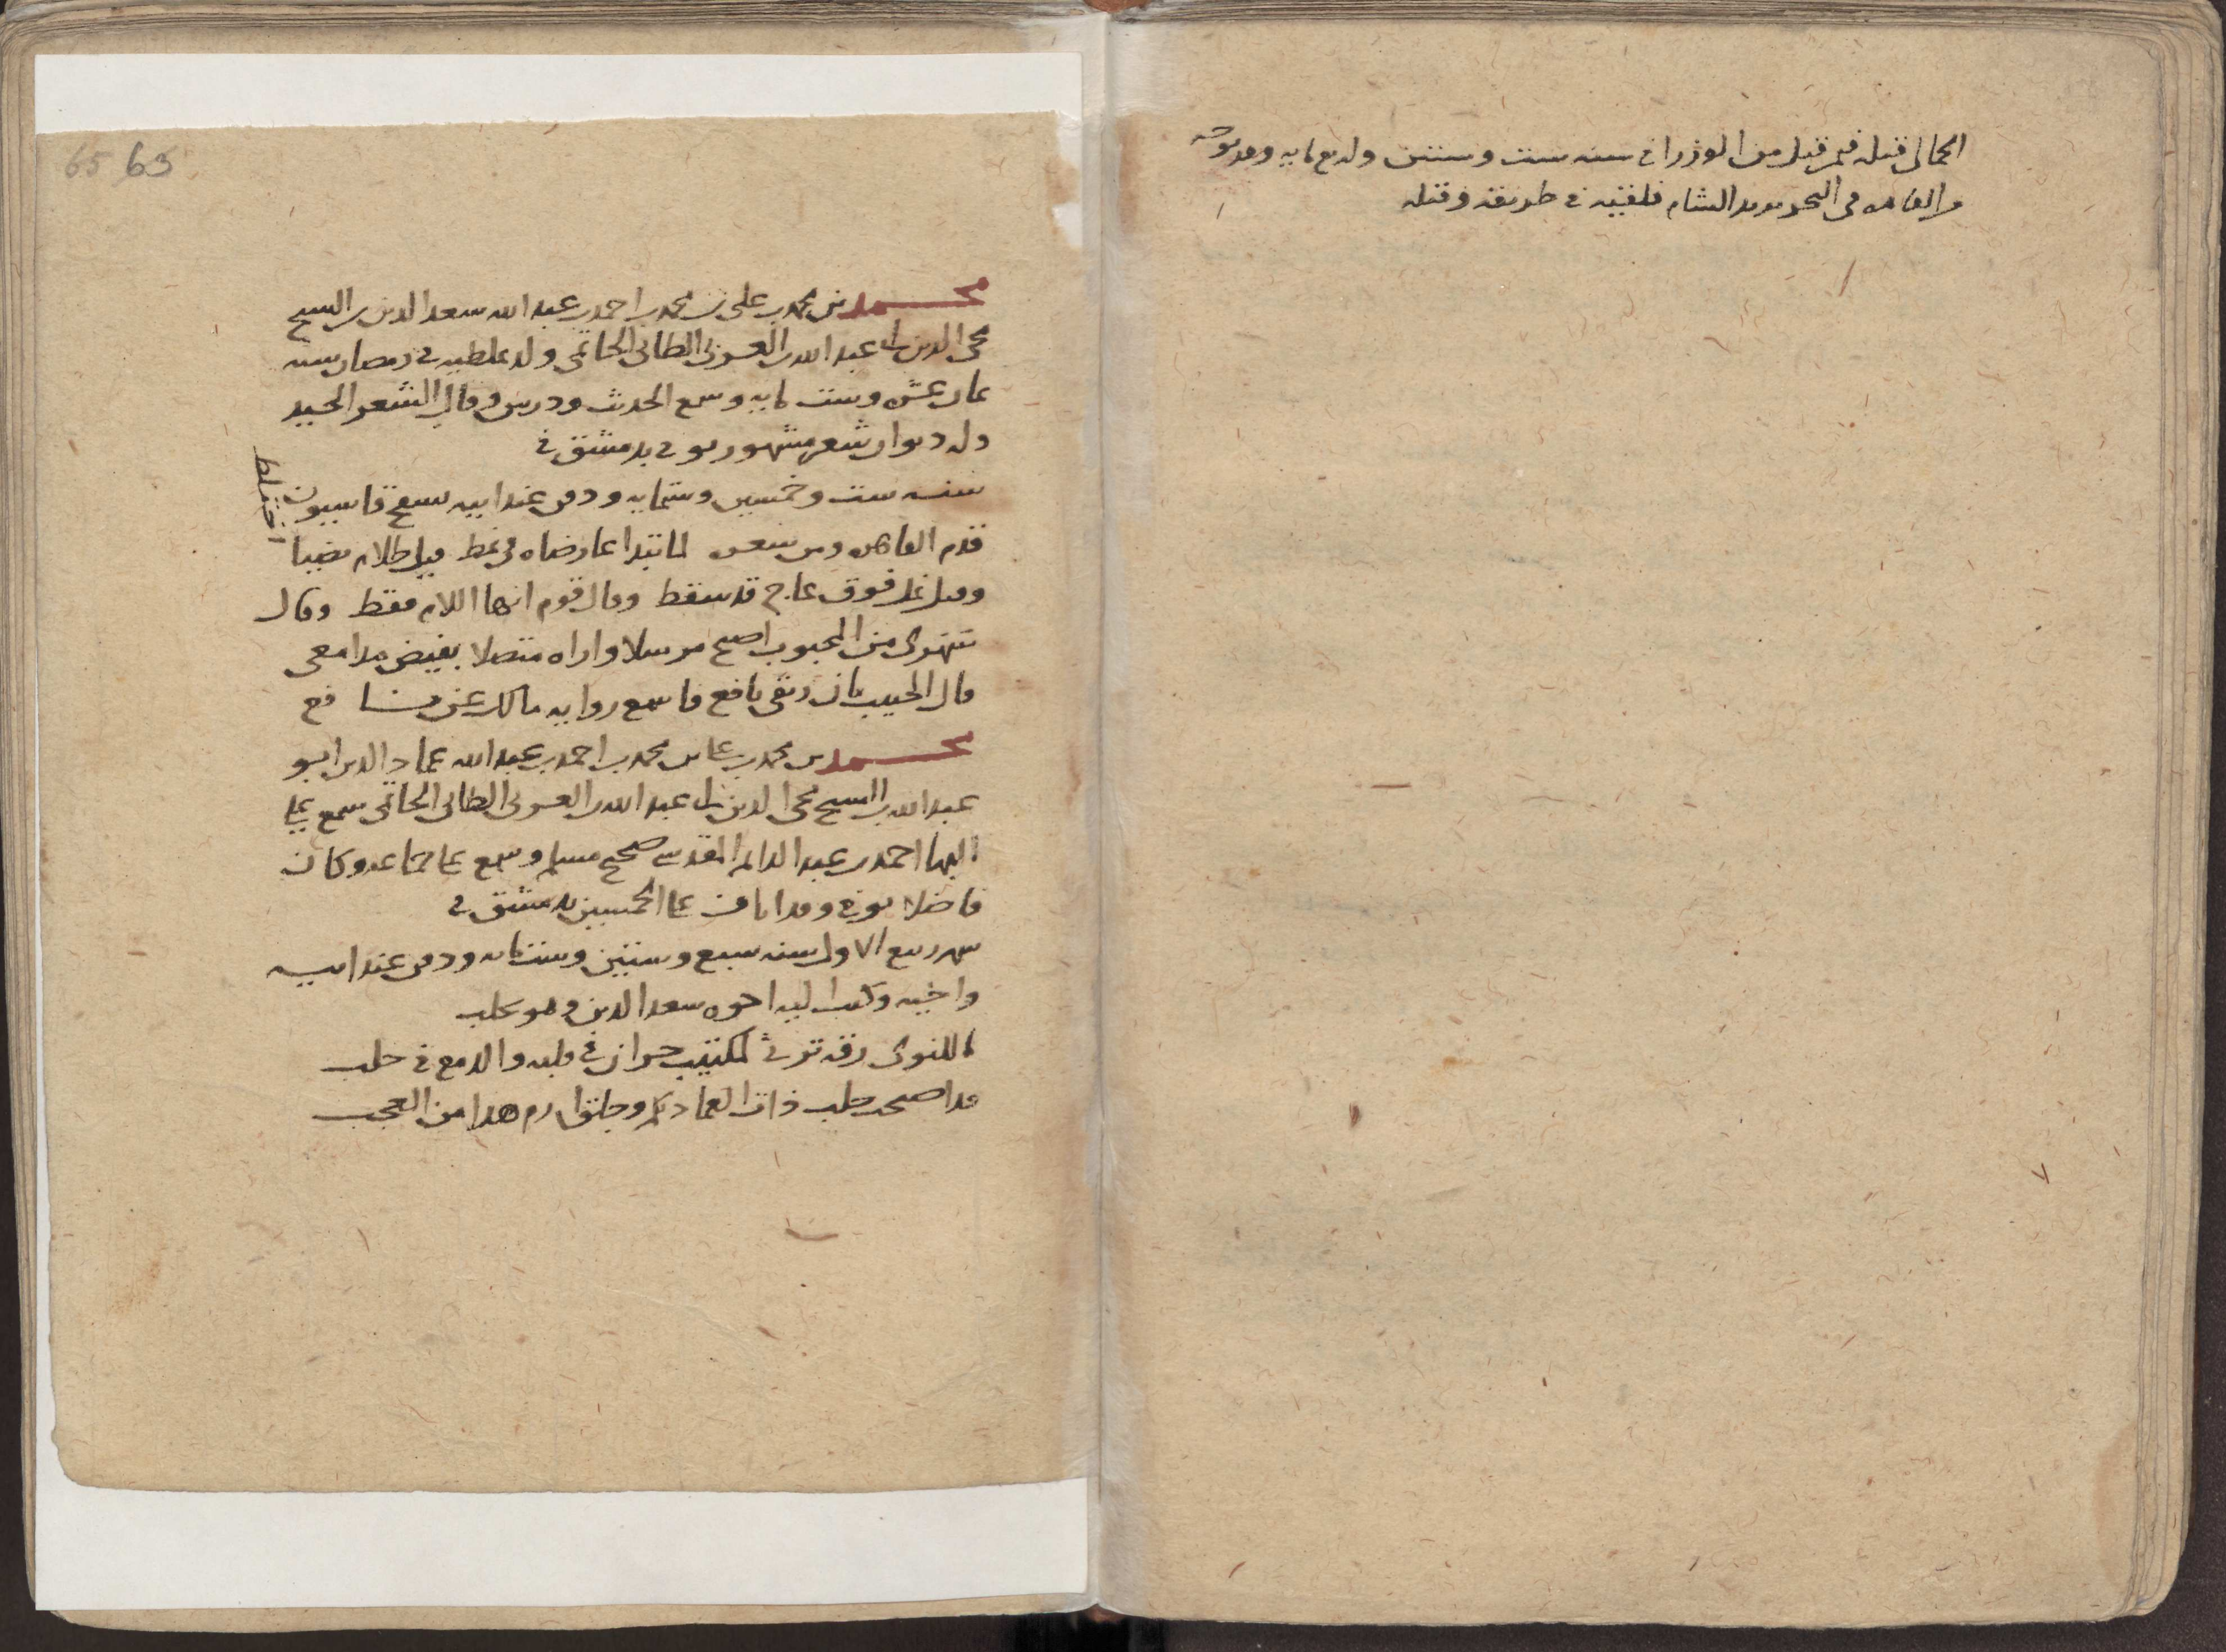 الجمالى قتله فيمن قتل من الوزرا فى سنه ست وستين واربع مايه وقد توجه
من القاهره فى البحر يريد الشام فلقيه فى طريقه وقتله
65 63
محمد بن محمد بن على بن محمد بن احمد بن عبد الله سعد الدين بن الشيخ
محى الدين ابى عبد الله بن العربى الطائى الحاتمى ولد بملطيه فى رمضان سنه
ثمان عشره وست مايه وسمع الحديث ودرس وقال الشعر الجيد
وله ديوان شعر مشهور توفى بدمشق فى
سنه ست وخمسين وستمايه ودفن عند ابيه بسفح قاسيون
قدم القاهره ومن شعره لما تبدا عارضاه فى نمط قيل ظلام بضيا
اختلط
وقيل نمل فوق عاج قد سقط وقال قوم انها اللام فقط وقال
سهرى من المحبوب اصبح مرسلا واراه متصلا بفيض مدامعى
قال الحبيب بان ريقى نافع فاسمع روايه مالك عن نا فع
محمد بن محمد بن على بن محمد بن احمد بن عبد الله عماد الدين ابو
عبد الله بن الشيخ محى الدين ابى عبد الله بن العربى الطائى الحاتمى سمع على
البها احمد بن عبد الدائم المقدسى صحيح مسلم وسمع على جماعه وكان
فاضلا توفى وقد اناف على الخمسين بدمشق فى
شهر ربيع الاول سنه سبع وستين وستمايه ودفن عند ابيه
واخيه وكتب اليه اخوه سعد الدين وهو بحلب
ما للنوى رقه ترثى لمكتئب حران فى قلبه والدمع فى حلب
قد اصبحت حلب ذات العماد بكم وجلق ارم هذا من العجب